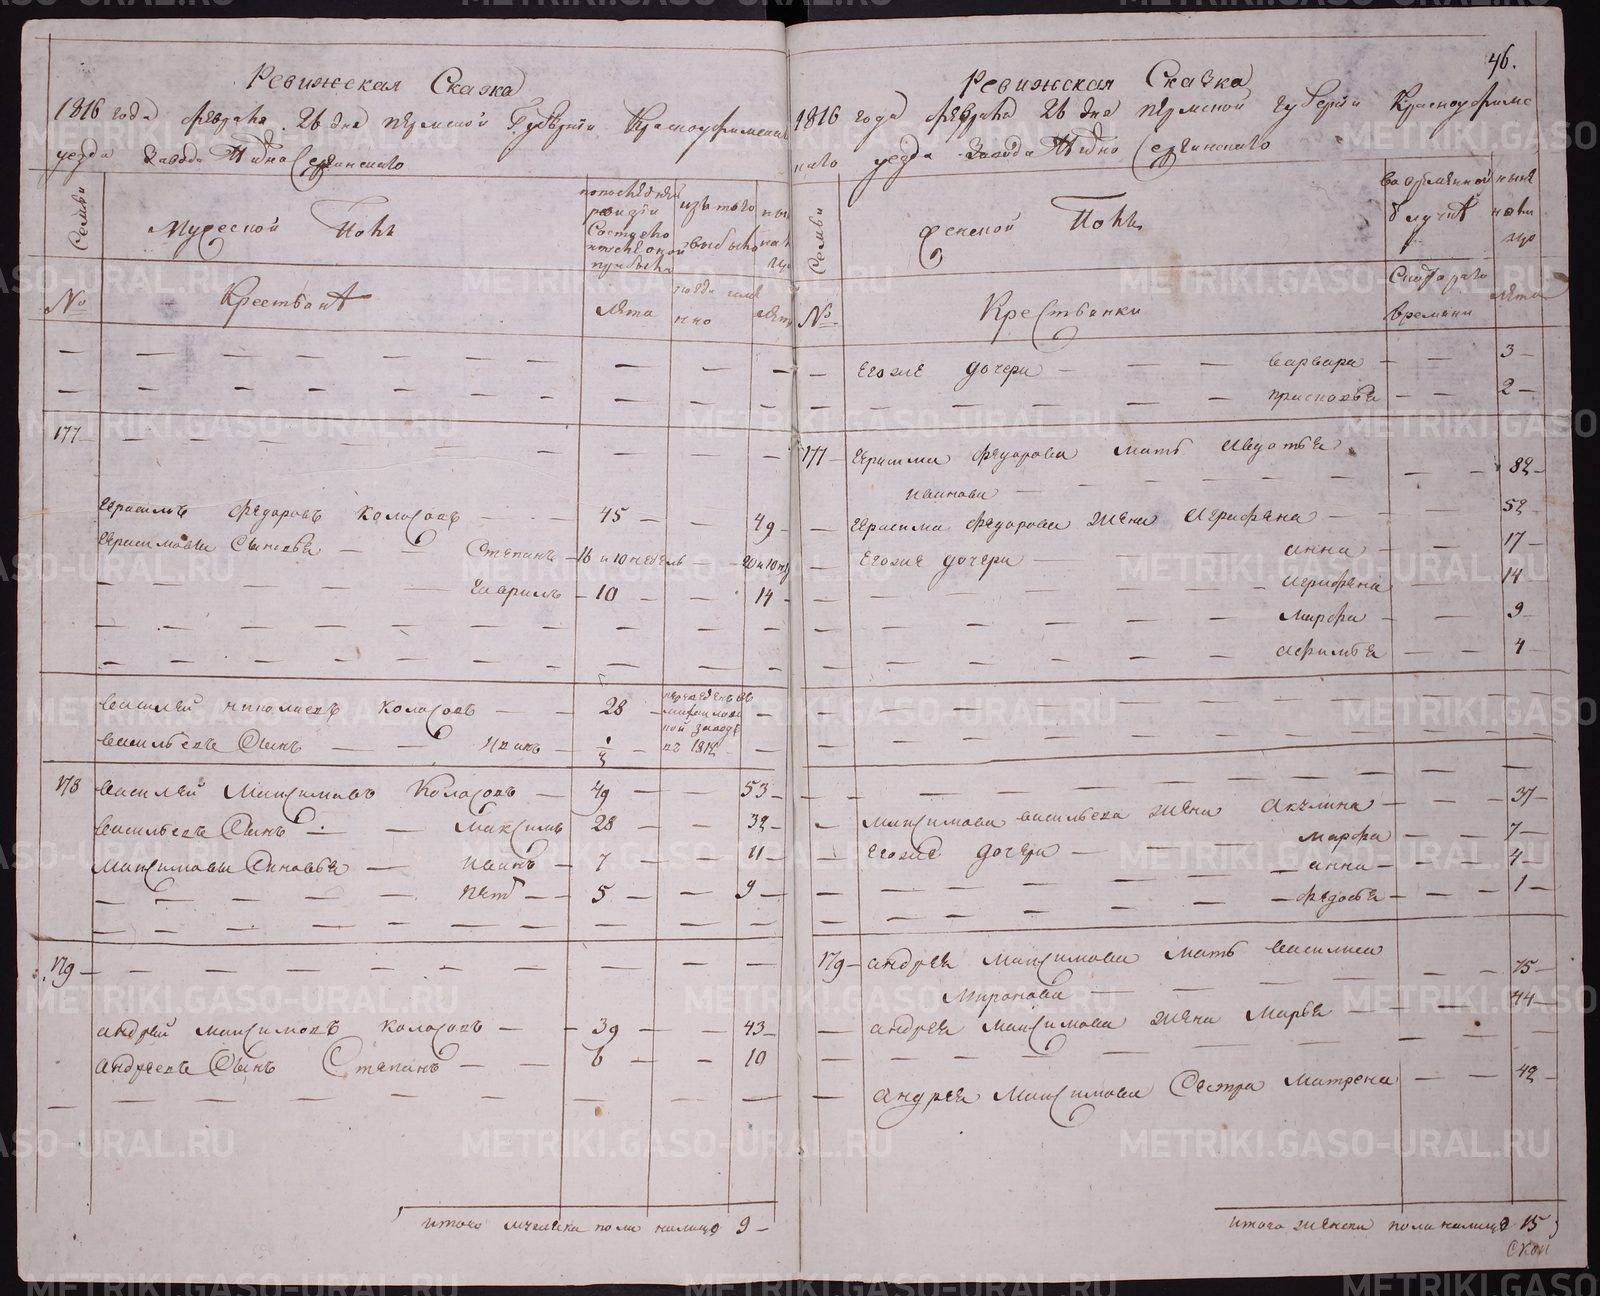 Ревижская Сказка
1816 года февраля 26 дня пермской Губернїи Красноуфимска
уезда Завода Нижно Сергинскаго
Семьи
Мужеской Полъ
по последней
ревизїи
Состояло
и после оной
прибыло
изъ того
выбыло
ны
на
лицо
№
Крестьянѣ
лѣта
когда имя
нно
лѣта
177
Герасимъ федоровъ Колосовъ 45 49
Герасимовы Сыновья Степанъ 16 и 10 недель 20 и 10 не
Гаврилъ 10 14
Василей николаевъ Колосовъ 28
переведенъ въ
михайловс
кой заводъ
въ 1812
Васильевъ Сынъ Иванъ
178 Василей Максимовъ Колосовъ 49 53
Васильевъ Сынъ Максимъ 28 32
Максимовы Синовья иванъ 7 11
петр 5 9
179
андрей максимовъ Колосовъ 39 43
андреевъ Сынъ Степанъ 6 10
итого мужеска пола налицо 9
46.
Ревижская Сказка
1816 года февраля 26 дня пермской губернїи Красноуфимс
каго уезда Завода Нижно Сергинскаго
Семьи
Женской Полъ
во временной
отлучкѣ
ныне
нали
цо
№
Крестьянки
Скотораго
времяни
лѣта
Егоже дочери варвара 3
прасковья 2
177 Герасима федорова мать Авдотья
иванова 82
Герасима федорова жена Аграфена 52
Егоже дочери анна 17
аграфена 14
марфа 9
афимья 4
Максима васильева жена Акулина 37
Егоже дочери марфа 7
анна 4
федосья 1
179 андрея максимова мать василиса
Миронова 75
андрея максимова жена Марья 44
андрея Максимова Сестра матрена 42
итого женска пола налицо 15
Скол
METRIKI.GASO-URAL.RU